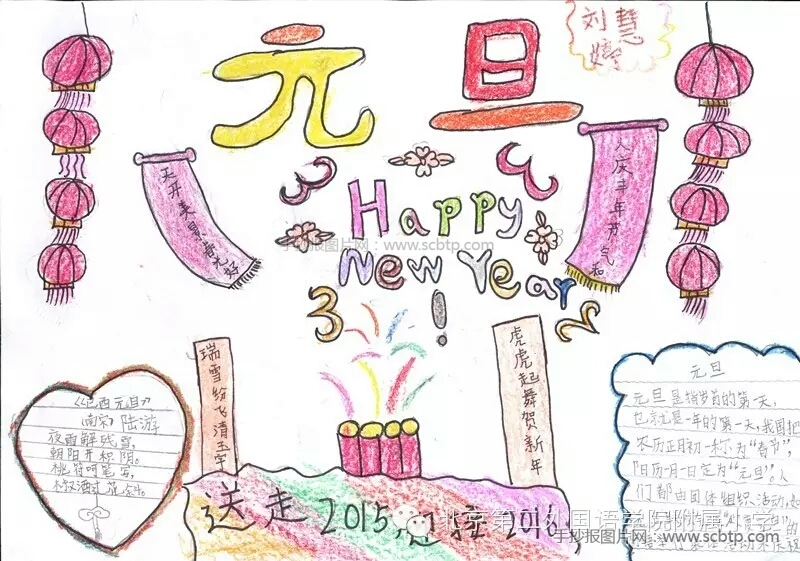 元旦
刘慧
婷
天开美景春光好
人庆丰年节气和
Happy
New Year
!
手抄报图片网:www.scbtp.com
瑞雪纷飞清玉宇
虎虎起舞贺新年
《己酉元旦》
(南宋)陆游
夜雨解残雪,
朝阳开积阴。
桃符呵笔写,
元旦
元旦是指岁首的第一天,
也就是一年的第一天,我国把
农历正月初一称为"春节",
阳历一月一日定为"元旦"。人
们都由团体组织活动,如
送走2015,
2016
北京第二外国语学院附属小学
手抄报图片网:www.scbtp.com